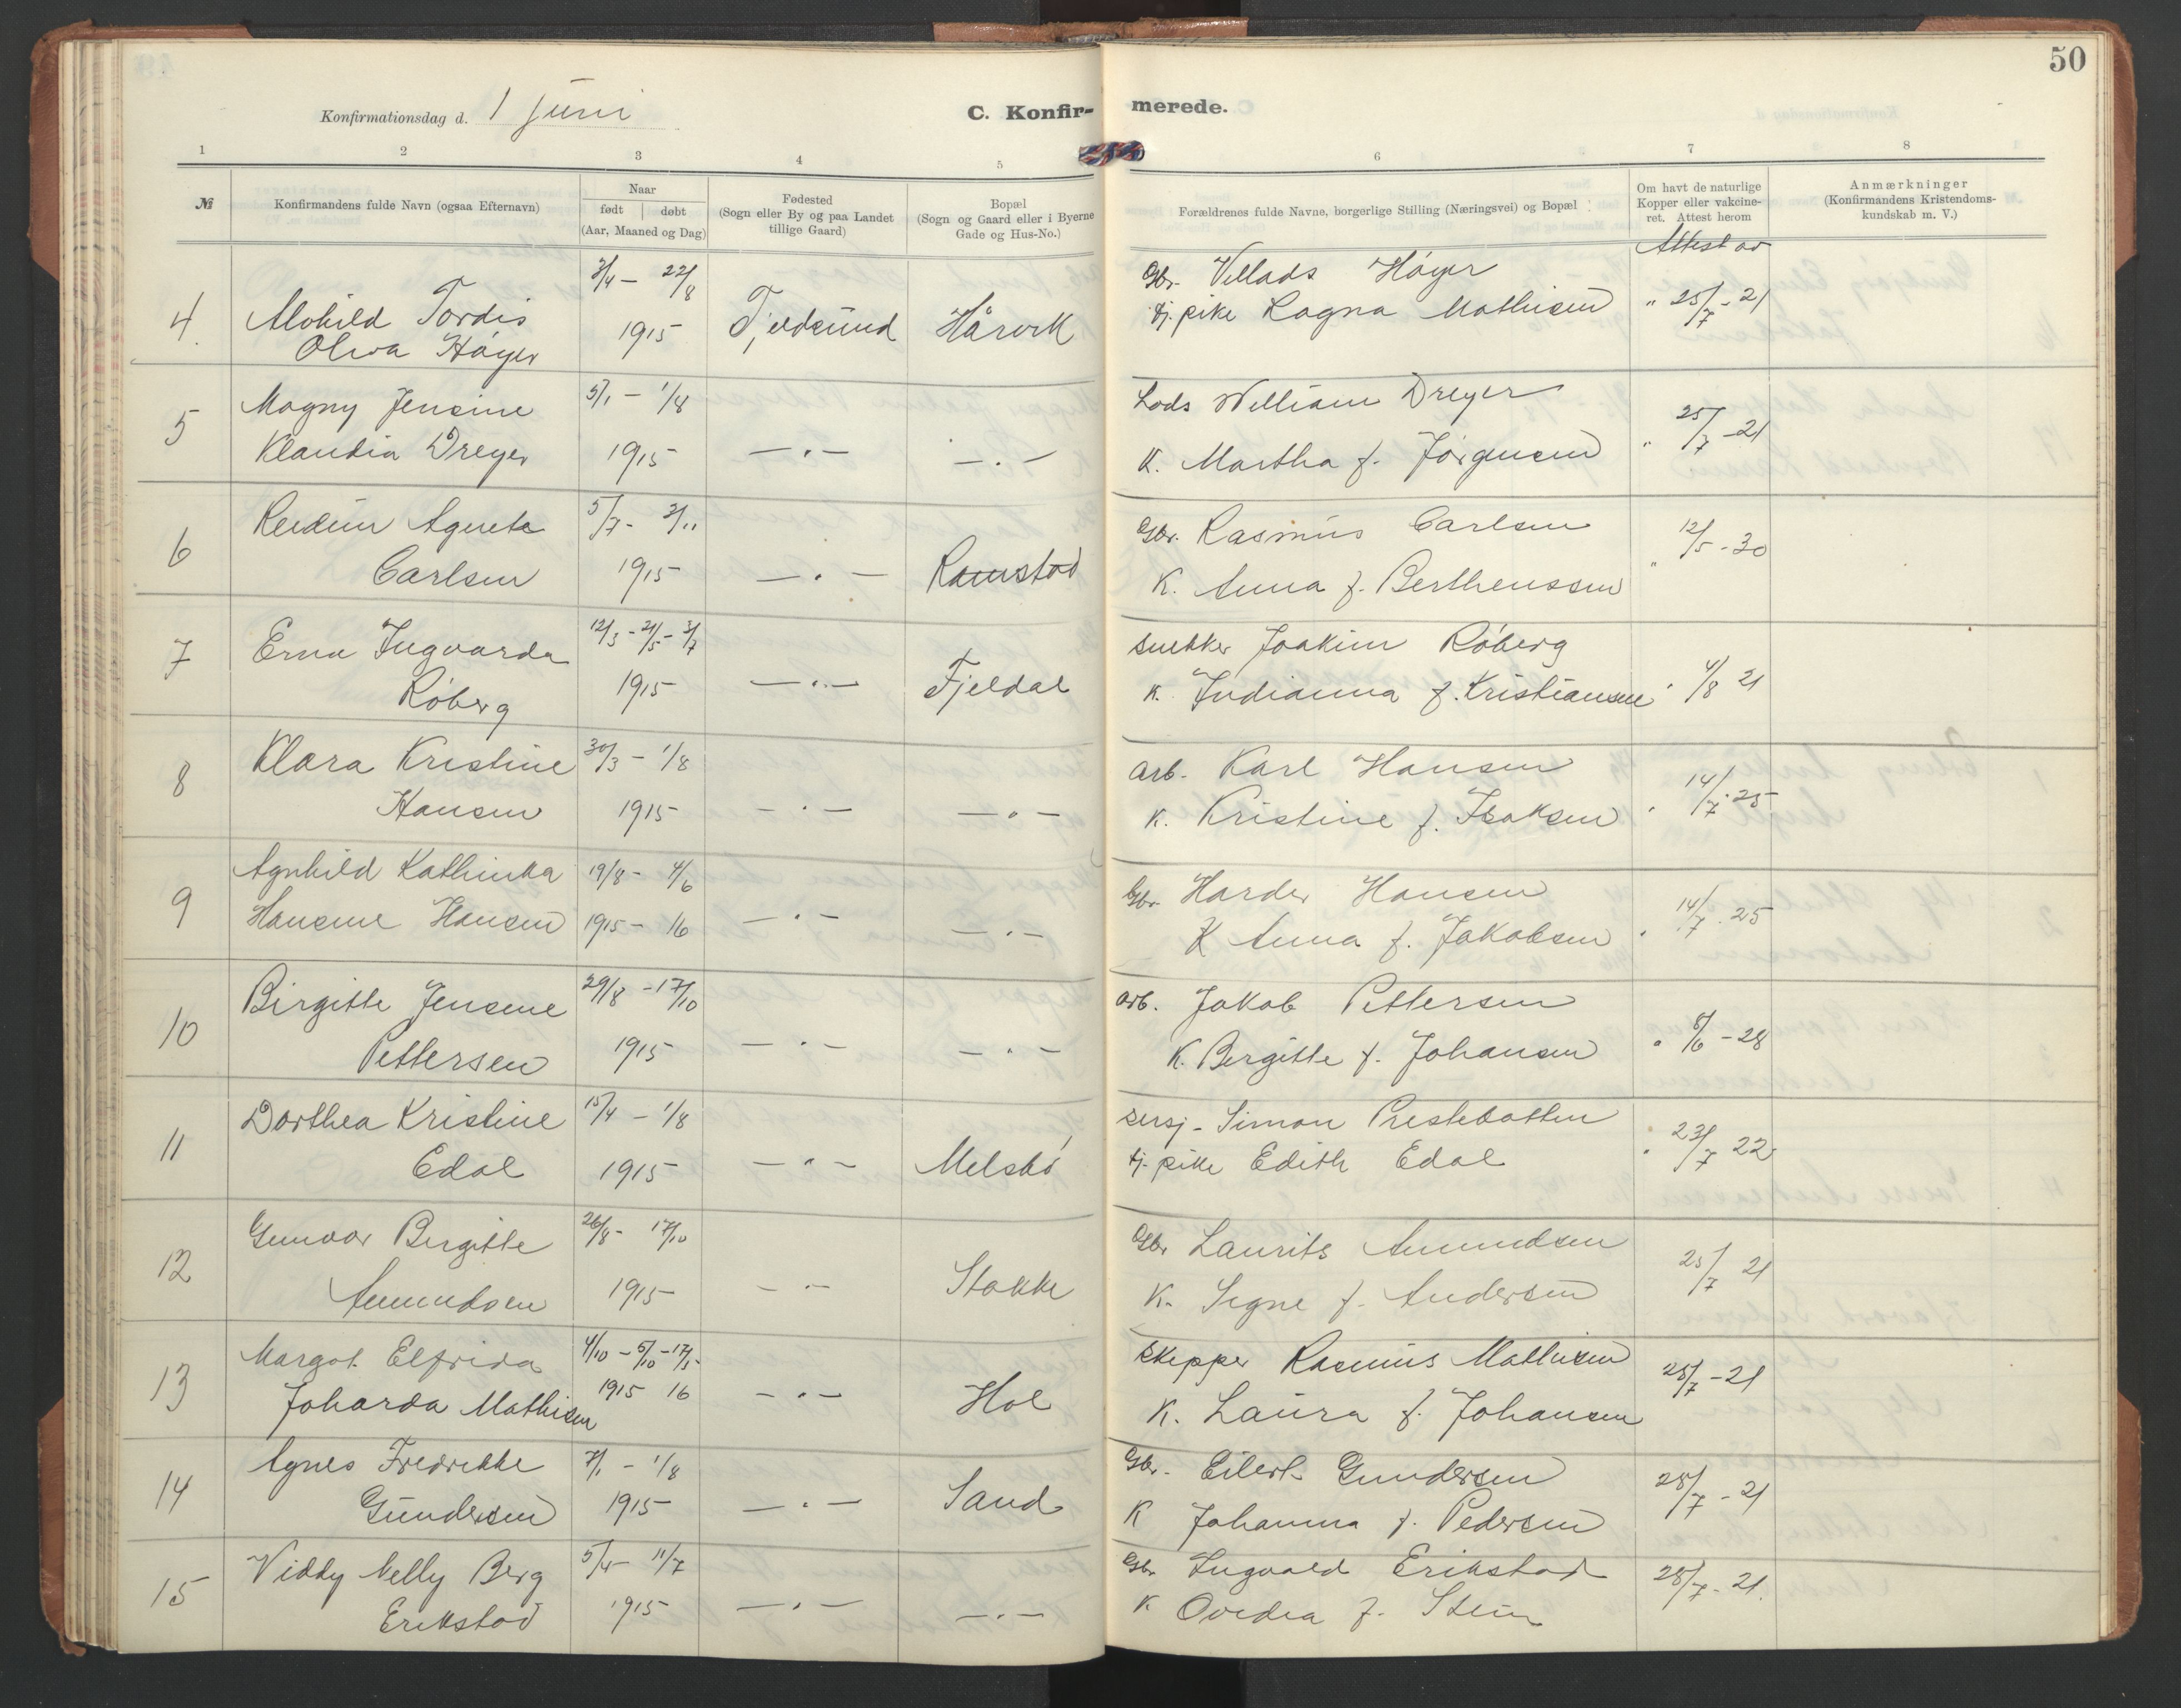 50
Konfirmationsdag d. 1 Juni
C. Konfirmerede.
1 2 3 4 5 6 7 8
№
Konfirmandens fulde Navn (ogsaa Efternavn)
Naar
født | døbt
(Aar, Maaned og Dag)
Fødested
(Sogn eller By og paa Landet
tillige Gaard)
Bopæl
(Sogn og Gaard eller i Byerne
Gade og Hus-No.)
Forældrenes fulde Navne, borgerlige Stilling (Næringsvei) og Bopæl
Om havt de naturlige
Kopper eller vakcine-
ret. Attest herom
Anmærkninger
(Konfirmandens Kristendoms-
kundskab m. V.)
Attest av
4 Alvhild Tordis
Oliva Høyer
3/4 – 22/8
1915 Fjeldsund Hårvik
Gbr. Villads Høyer
tj. pike Ragna Mathisen " 25/7 - 21
5 Magny Jensine
Klaudia Dreyer
5/1 – 1/8
1915 — " — — . —
Lods William Dreyer
K. Martha f. Jørgensen " 25/7 - 21
6 Reidun Agneta
Carlsen
5/7 - 2/11
1915 — . — Ramstad
Gbr. Rasmus Carlsen
K. Anna f. Berthenssen " 12/5 - 30
7 Erna Ingvarda
Røberg
12/3 - 21/5 - 3/7
1915 — " — Fjeldal
snekker Joakim Røberg
K. Indianna f. Kristiansen " 4/8 21
8 Klara Kristine
Hansen
30/3 – 1/8
1915 — . — — . —
Arb. Karl Hansen
K. Kristine f. Isaksen " 14/7 - 25
9 Agnhild Kathinka
Hansine Hansen
19/8 - 4/6
1915 – 16 — . — — . —
Gbr. Harder Hansen
K Anna f. Jakobsen " 14/7 . 25
10 Birgitte Jensine
Pettersen
29/8 - 17/10
1915 — . — — . —
Arb. Jakob Pettersen
K. Bergitte f. Johansen " 8/6 - 28
11 Dorthea Kristine
Edal
15/4 – 1/8
1915 — " — Melsbø
sersj. Simon Prestebatten
tj. pike Edith Edal " 23/7 22
12 Gunvor Birgitte
Amundsen
26/8 - 17/10
1915 — " — Stokke
Gbr Laurits Amundsen
K. Signe f. Andersen 25/7 21
13 Margot Elfrida
Joharda Mathisen
4/10 - 5/10 - 17/5
1915 16 — . — Hol
Skipper Rasmus Mathisen
K. Laura f. Johansen 28/7 - 21
14 Agnes Fredrikke
Gundersen
7/1 – 1/8
1915 — . — Sand
Gbr. Eilert Gundersen
K Johanna f. Pedersen 28/7 - 21
15 Viddy Nelly Berg
Erikstad
5/4 - 11/7
1915 — . — — . —
Gbr Ingvald Erikstad
K Ovedia f. Stein 28/7 - 21.